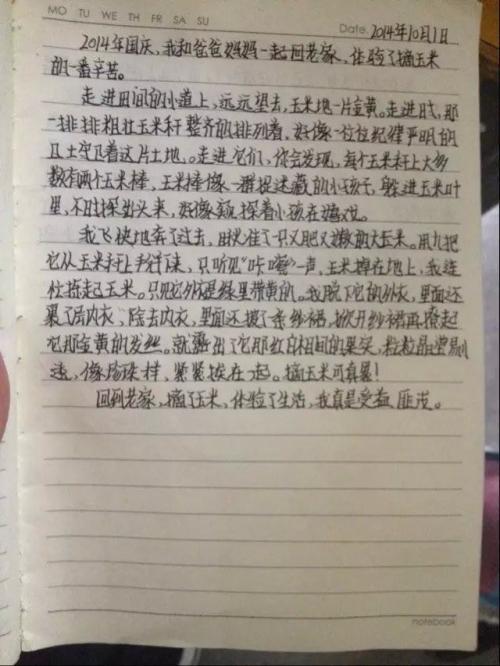 MO TU WE TH FR SA SU
Date. 2014年10月1日
2014年国庆,我和爸爸妈妈一起回老家,体验了摘玉米
的一番辛苦。
走进田间的小道上,远远望去,玉米地一片金黄。走进时,那
一排排粗壮玉米秆整齐的排列着,好像一位位纪律严明的
卫士守卫着这片土地。走进它们,你会发现,每个玉米秆上大多
数有两个玉米棒,玉米棒像一群捉迷藏的小孩子,躲进玉米叶
里,不时探出头来,好像窥探着小孩在嬉戏。
我飞快地奔了过去,瞄准了只又肥又嫩的大玉米。用力把
它从玉米秆上掰下来,只听见“咔嚓”一声,玉米掉在地上,我连
忙捡起玉米。只见它外衣是绿里带黄的。我脱下它的外衣,里面还
裹了层内衣,除去内衣,里面还披了条纱裙,掀开纱裙再撩起
它那金黄的发丝。就露出了它那红白相间的果实,粒粒晶莹剔
透,像珍珠一样,紧紧挨在一起。摘玉米可真累!
回到老家,摘了玉米,体验了生活,我真是受益匪浅。
notebook